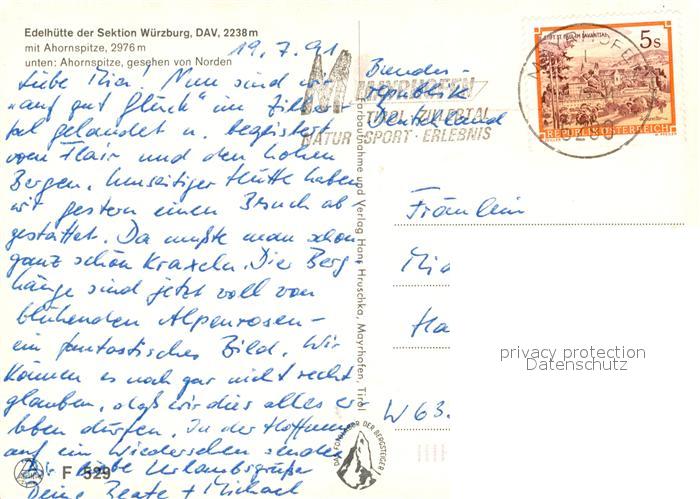 Edelhütte der Sektion Würzburg, DAV, 2238m
mit Ahornspitze, 2976m
unten: Ahornspitze, gesehen von Norden
19.7.91
Liebe Mia! Nun sind wir
"auf gut Glück" im Ziller-
tal gelandet u. begeistert
vom Flair und den hohen
Bergen. Umseitiger Hütte haben
wir gestern einen Besuch ab
gestattet. Da mußte man schon
ganz schön kraxeln. Die Berg
hänge sind jetzt voll von
blühenden Alpenrosen –
ein fantastisches Bild. Wir
können es noch gar nicht recht
glauben, daß wir dies alles er
leben dürfen. In der Hoffnung
auf ein Wiedersehen senden
Dir liebe Urlaubsgrüße
Deine Beate + Michael
F 529
Farbaufnahme und Verlag Hans Hruschka, Mayrhofen, Tirol
MAYRHOFEN
TIROL ZILLERTAL
NATUR - SPORT - ERLEBNIS
5s
REPUBLIK ÖSTERREICH
Bundes-
republik
Deutschland
Fräulein
Mia
Ha
W 63.
privacy protection
Datenschutz